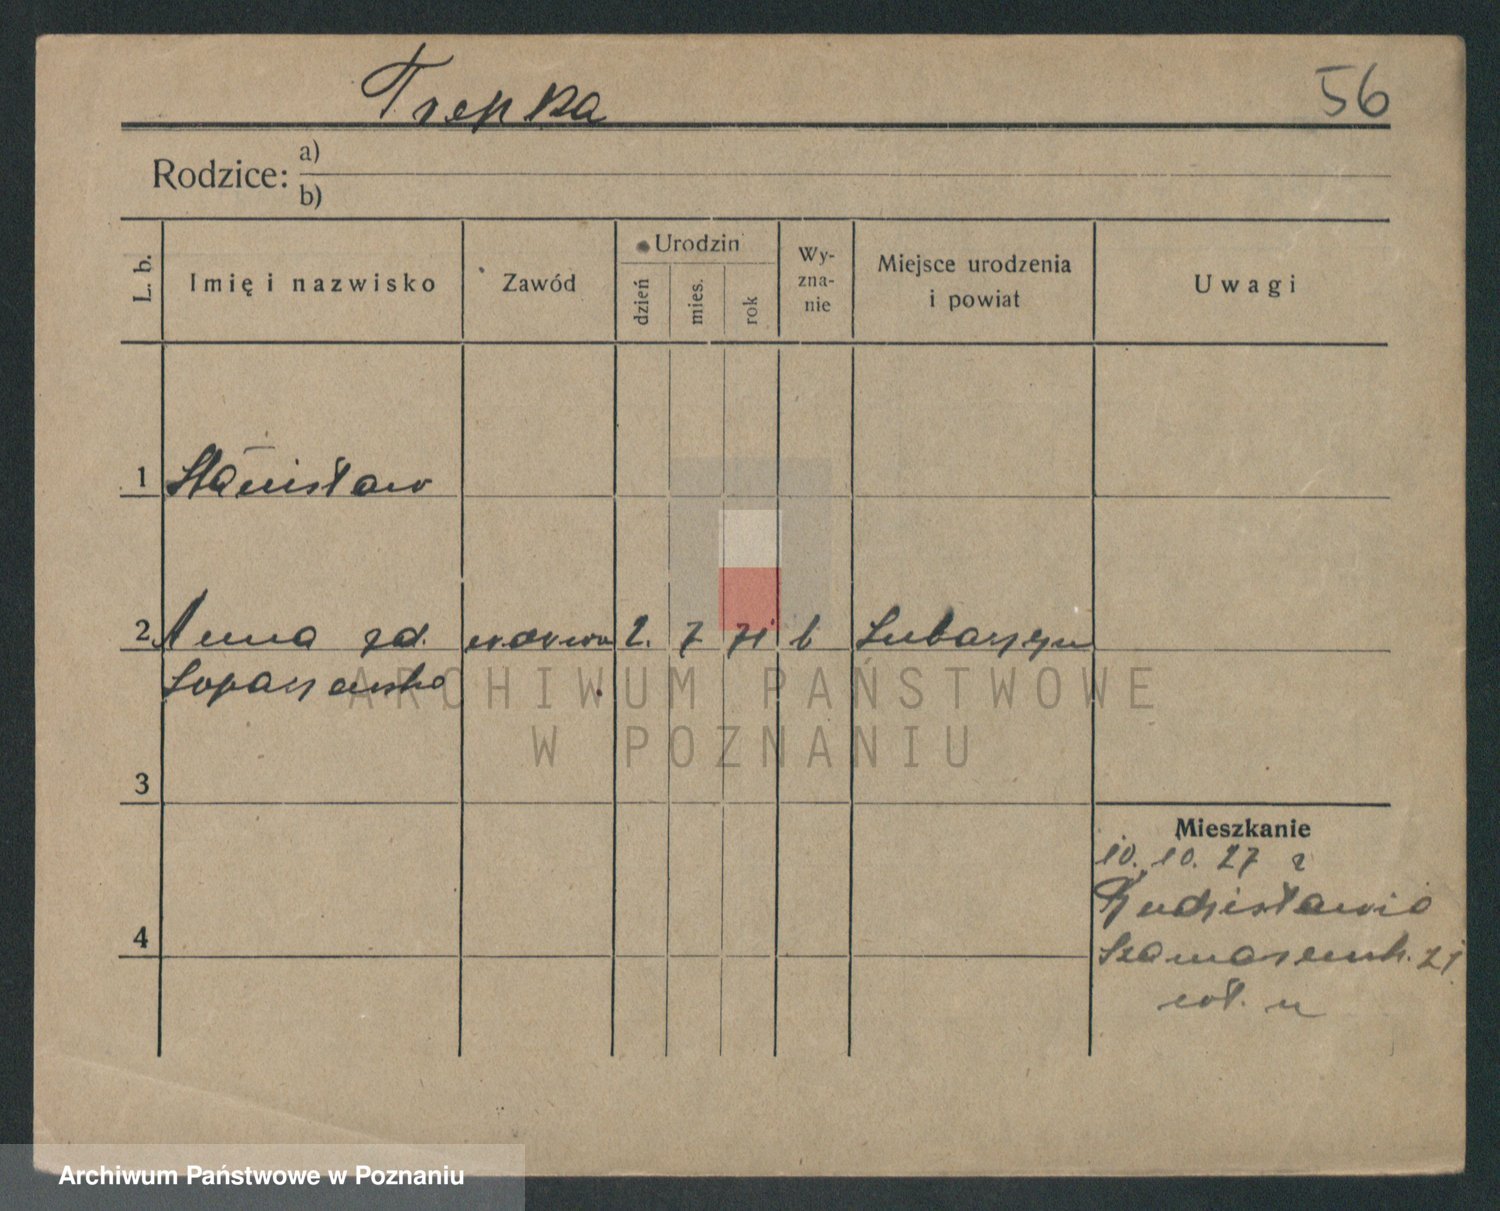 Trepka
56
Rodzice: a)
b)
L. b.
Imię i nazwisko
Zawód
Urodzin
dzień
mies.
rok
Wy-
zna-
nie
Miejsce urodzenia
i powiat
Uwagi
1 Stanisław
2 Anna zd. wdowa 2. 7 71 k
ARCHIWUM PAŃSTWOWE
W POZNANIU
3
Mieszkanie
10. 10. 27
4
21
Archiwum Państwowe w Poznaniu